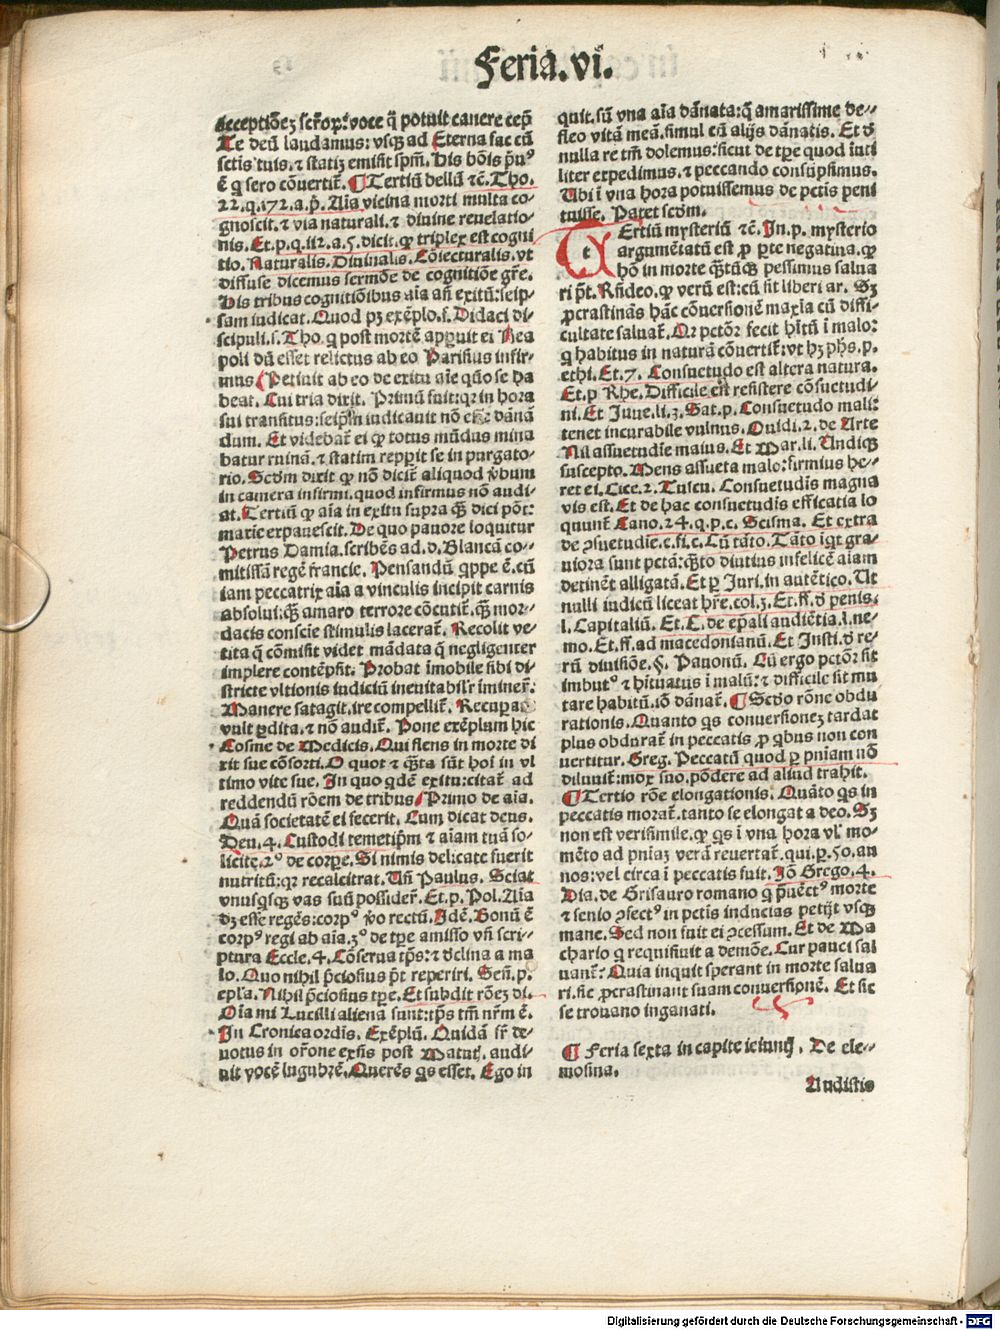 Feria.vi.
deceptiōeȝ scr̄oꝝ: voce q̄ potuit cauere cep̄
Te deū laudamus: vsqꝫ ad Eterna fac cū
sctīs tuis.⁊ statiꝫ emisit spm̄. His bōis p̄uꝰ
ē q̄ sero cōuertit̄. ¶ Tertiū bellū ⁊c̄. Tho.
22.q.172.a.p̄. Aīa vicina morti multa co-
gnoscit.⁊ via naturali.⁊ diuine reuelatio-
nis. Et.p.q.iii.a.5.dicit.qꝙ triplex est cogni
tio. Naturalis. Diuinalis. Cōiecturalis. vt
diffuse dicemus sermōe de cognitiōe gr̄e.
His tribus cognitiōibus aīa añ exitū: seip-
sam iudicat. Quod pꝫ exēplo. s. Didaci di-
scipuli. s. Tho. q post mortē apparuit ei Nea
poli dū esset relictus ab eo Parisius infir-
mus ( Petiuit ab eo de exitu aīe qūo se ha
beat. Cui tria dixit. Primū fuit: qꝛ in hora
sui transitus: seipm̄ iudicauit nō eē dānā
dum. Et videbat̄ ei qꝙ totus mūdus mina
batur ruinā.⁊ statim repperit se in purgato-
rio. Scd̄m dixit qꝙ nō dicit̄ aliquod ṽbum
in camera infirmi. quod infirmus nō audi-
at. Tertiū qꝙ aīa in exitu supra qꝫ dici pōt:
marie expauescit. De quo pauore loquitur
Petrus Damia. scribēs ad. d. Blancā co-
mitissā regē francie. Pensandū qppe ē. cū
iam peccatrix aīa a vinculis incipit carnis
absolui: qꝫ amaro terrore cōcutit̄. qꝫ mor-
dacis conscīe stimulis lacerat̄. Recolit ve-
tita q̄ cōmisit videt mādata q̄ negligenter
implere contēpsit. Probat īmobile sibi di-
stricte vltionis iudiciū ineuitabil'r īminer̄.
Manere satagit. ire compellit̄. Recupa
vult ꝑdita.⁊ nō audit̄. Pone exēplum hic
Cosme de Medicis. Qui flens in morte di
xit sue cōsorti. O quot ⁊ qꝫta sūt hoī in vl
timo vite sue. In quo qdē exitu: citat̄ ad
reddendū rōem de tribus ( Primo de aīa.
Quā societatē ei fecerit. Cum dicat deus.
Deu.4. Custodi temetip̄m ⁊ aīam tuā so-
licite. 2º de corpe. Si nimis delicate fuerit
nutritū: qꝛ recalcitrat. Vn̄ Paulus. Sciat
vnusqsqꝫ vas suū possider̄. Et. p. Pol. Aīa
dꝫ esse regēs: corpꝰ ṽo rectū. Idē. Bonū ē
corpꝰ regi ab aīa. 3º de tpe amisso vn̄ scri-
ptura Eccle. 4. Cōserua tp̄s: ⁊ d̄clina a ma
lo. Quo nihil p̄ciosius p̄t reperiri. Seń. p.
epl'a. Nihil p̄ciosius tpe. Et subdit rōeȝ di.
Oīa mi Lucilli aliena sunt: tp̄s tm̄ nr̄m ē.
In Cronica ordīs. Exēplū. Quidā fr̄ de-
uotus in or̄one exn̄s post Matuti. audi-
uit vocē lugubrē. Querēs qs esset. Ego in
quit. sū vna aīa dānata: q̄ amarissime de-
fleo vitā meā. simul cū alijs dānatis. Et d̄
nulla re tm̄ dolemus: sicut de tpe quod īuti
liter expedimus.⁊ peccando consūpsimus.
Vbi ī vna hora potuissemus de pctīs peni
tuisse. Patet scd̄m.
TErtiū mysteriū ⁊c̄. In. p. mysterio
argumētatū est ꝓ ꝑte negatiua. qꝙ
hō in morte qꝫtūcūqꝫ pessimus salua
ri p̄t. Rn̄deo. qꝙ verū est: cū sit liberi ar. Sꝫ
ꝓcrastinās hāc cōuersionē maxīa cū diffi-
cultate saluat̄. Qꝛ pctōr fecit hītū ī malo:
q habitus in naturā cōuertit̄: vt hꝫ ph̄s. p.
ethi. Et. 7. Consuetudo est altera natura.
Et. p Rhe. Difficile est resistere cōsuetudi-
ni. Et Juue. li. 3. Sat. p. Consuetudo mali:
tenet incurabile vulnus. Ouidi. 2. de Arte
Nil assuetudīe maius. Et Mar. li. Undiqꝫ
suscepto. Mens assueta malo: firmius he-
ret ei. Cice. 2. Tuscu. Consuetudīs magna
vis est. Et de hac consuetudīs efficatia lo
quunt̄ Cano. 24. q. p. c. Scisma. Et extra
de ↄsuetudīe. c. fi. c. Cū tāto. Tāto īqt gra-
uiora sunt pctā: qꝫto diutius infelicē aīam
detinēt alligatā. Et ꝑ Juri. in autētico. Ut
nulli iudicū liceat hr̄e. col. 3. Et. ff. d̄ penis.
l. Capitaliū. Et. C. de ep̄ali audiētia. l. ne-
mo. Et. ff. ad macedonianū. Et Insti. d̄ re-
rū diuisiōe. §. Pauonū. Cū ergo pctōr sit
imbutꝰ ⁊ hītuatus ī malū: ⁊ difficile sit mu
tare habitū. iō dānat̄. ¶ Scd̄o rōne obdu
rationis. Quanto qs conuersioneȝ tardat
plus obdurat̄ in peccatis ꝓ qbus non con
uertitur. Greg. Peccatū quod ꝑ pniam nō
diluuit̄: mox suo. pōdere ad aliud trahit.
¶ Tertio rōe elongationis. Quāto qs in
peccatis morat̄. tanto se elongat a deo. Sꝫ
non est verisimile. qꝙ qs ī vna hora vl' mo-
mēto ad pniaȝ verā reuertat̄. qui. p. 50. an
nos: vel circa ī peccatis fuit. Jō Grego. 4.
Dia. de Grisauro romano q p̄uectꝰ morte
⁊ senio ↄfectꝰ in pctīs inducias petijt vsqꝫ
mane. Sed non fuit ei ↄcessum. Et de Ma
chario q requisiuit a demōe. Cur pauci sal
uant̄: Quia inquit sperant in morte salua
ri. sic ꝓcrastinant suam conuersionē. Et sic
se trouano inganati.
¶ Feria sexta in capite ieiunij. De ele-
mosina.
Audistis
Digitalisierung gefördert durch die Deutsche Forschungsgemeinschaft - DFG